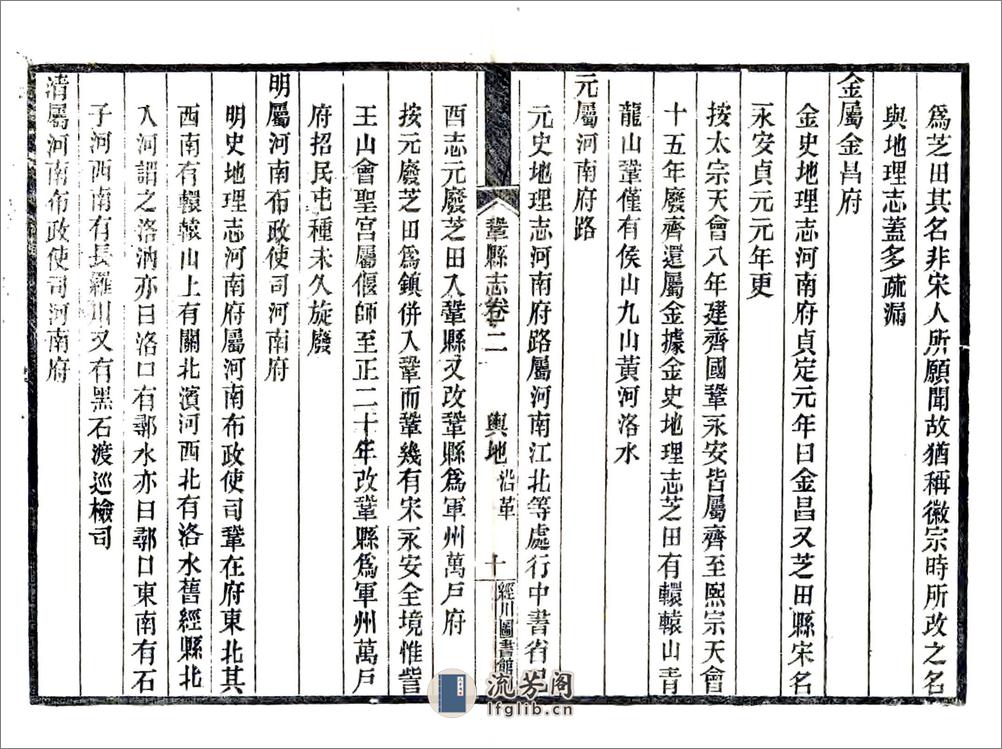 爲芝田其名非宋人所願聞故猶稱徽宗時所改之名
與地理志蓋多疏漏
金屬金昌府
金史地理志河南府貞定元年曰金昌又芝田縣宋名
永安貞元元年更
按太宗天會八年建齊國鞏永安皆屬齊至熙宗天會
十五年廢齊還屬金據金史地理志芝田有轘轅山青
龍山鞏僅有侯山九山黃河洛水
元屬河南府路
元史地理志河南府路屬河南江北等處行中書省
鞏縣志卷二 輿地 沿革 十 經川圖書館
酉志元廢芝田入鞏縣又改鞏縣爲軍州萬戶府
按元廢芝田爲鎮併入鞏而鞏幾有宋永安全境惟訾
王山會聖宮屬偃師至正二十年改鞏縣爲軍州萬戶
府招民屯種未久旋廢
明屬河南布政使司河南府
明史地理志河南府屬河南布政使司鞏在府東北其
西南有轘轅山上有關北濱河西北有洛水舊經縣北
入河謂之洛汭亦曰洛口有鄩水亦曰鄩口東南有石
子河西南有長羅川又有黑石渡巡檢司
清屬河南布政使司河南府
流芳阁
lfglib.cn